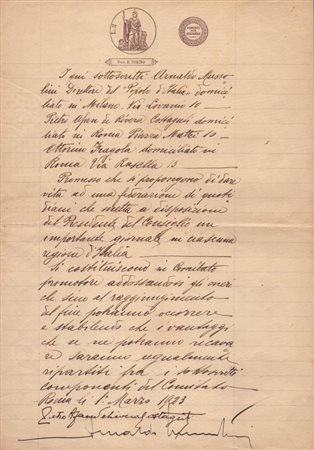 I qui sottoscritti Arnaldo Musso-
lini Direttore del "Popolo d'Italia" domici-
liato in Milano Via Lovanio 10
Pietro Afan de Rivera Costaguti domici-
liato in Roma Piazza Mattei 10
Ottorino Fragola domiciliato in
Roma Via Rasella 13
Premesso che si propongono di dar
vita ad una federazione di quoti
diani che metta a disposizione
del Presidente del Consiglio un
importante giornale in ciascuna
regione d'Italia
Si costituiscono in Comitato
promotore addossandosi gli oneri
che sino al raggiungimento
del fine potranno occorrere
e stabilendo che i vantaggi
che se ne potranno ricava
re saranno ugualmente
ripartiti fra i sottoscritti
componenti del Comitato
Roma li 1° Marzo 1923
Pietro Afan de Rivera Costaguti
Arnaldo Mussolini